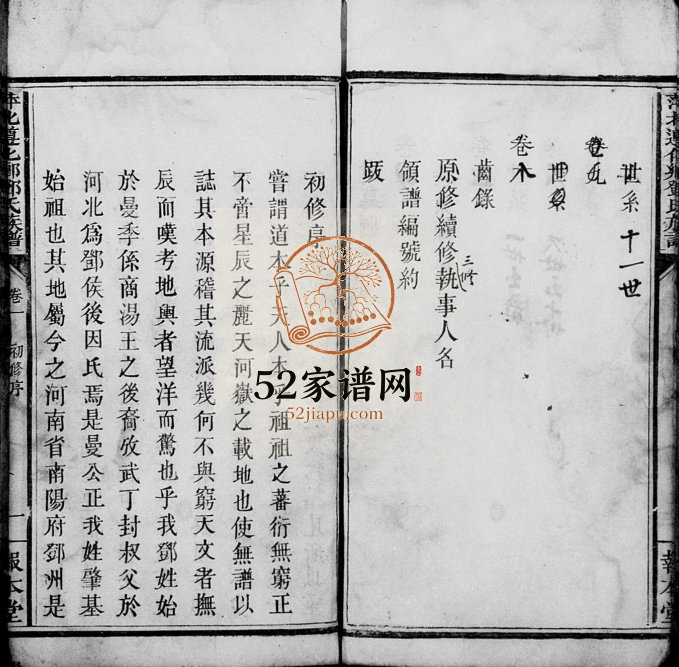 世系 十一世
卷九
世系
卷
齒錄
原修續修三修執事人名
領譜編號約
跋
報本堂
初修序
嘗謂道本乎天人本乎祖祖之蕃衍無窮正
不啻星辰之麗天河嶽之載地也使無譜以
誌其本源稽其流派幾何不與窮天文者撫
辰而嘆考地輿者望洋而驚也乎我鄧姓始
於曼季係商湯王之後裔攷武丁封叔父於
河北爲鄧侯後因氏焉是曼公正我姓肇基
始祖也其地屬今之河南省南陽府鄧州是
卷一
初修序
一
報本堂
52家谱网
52jiapu.com